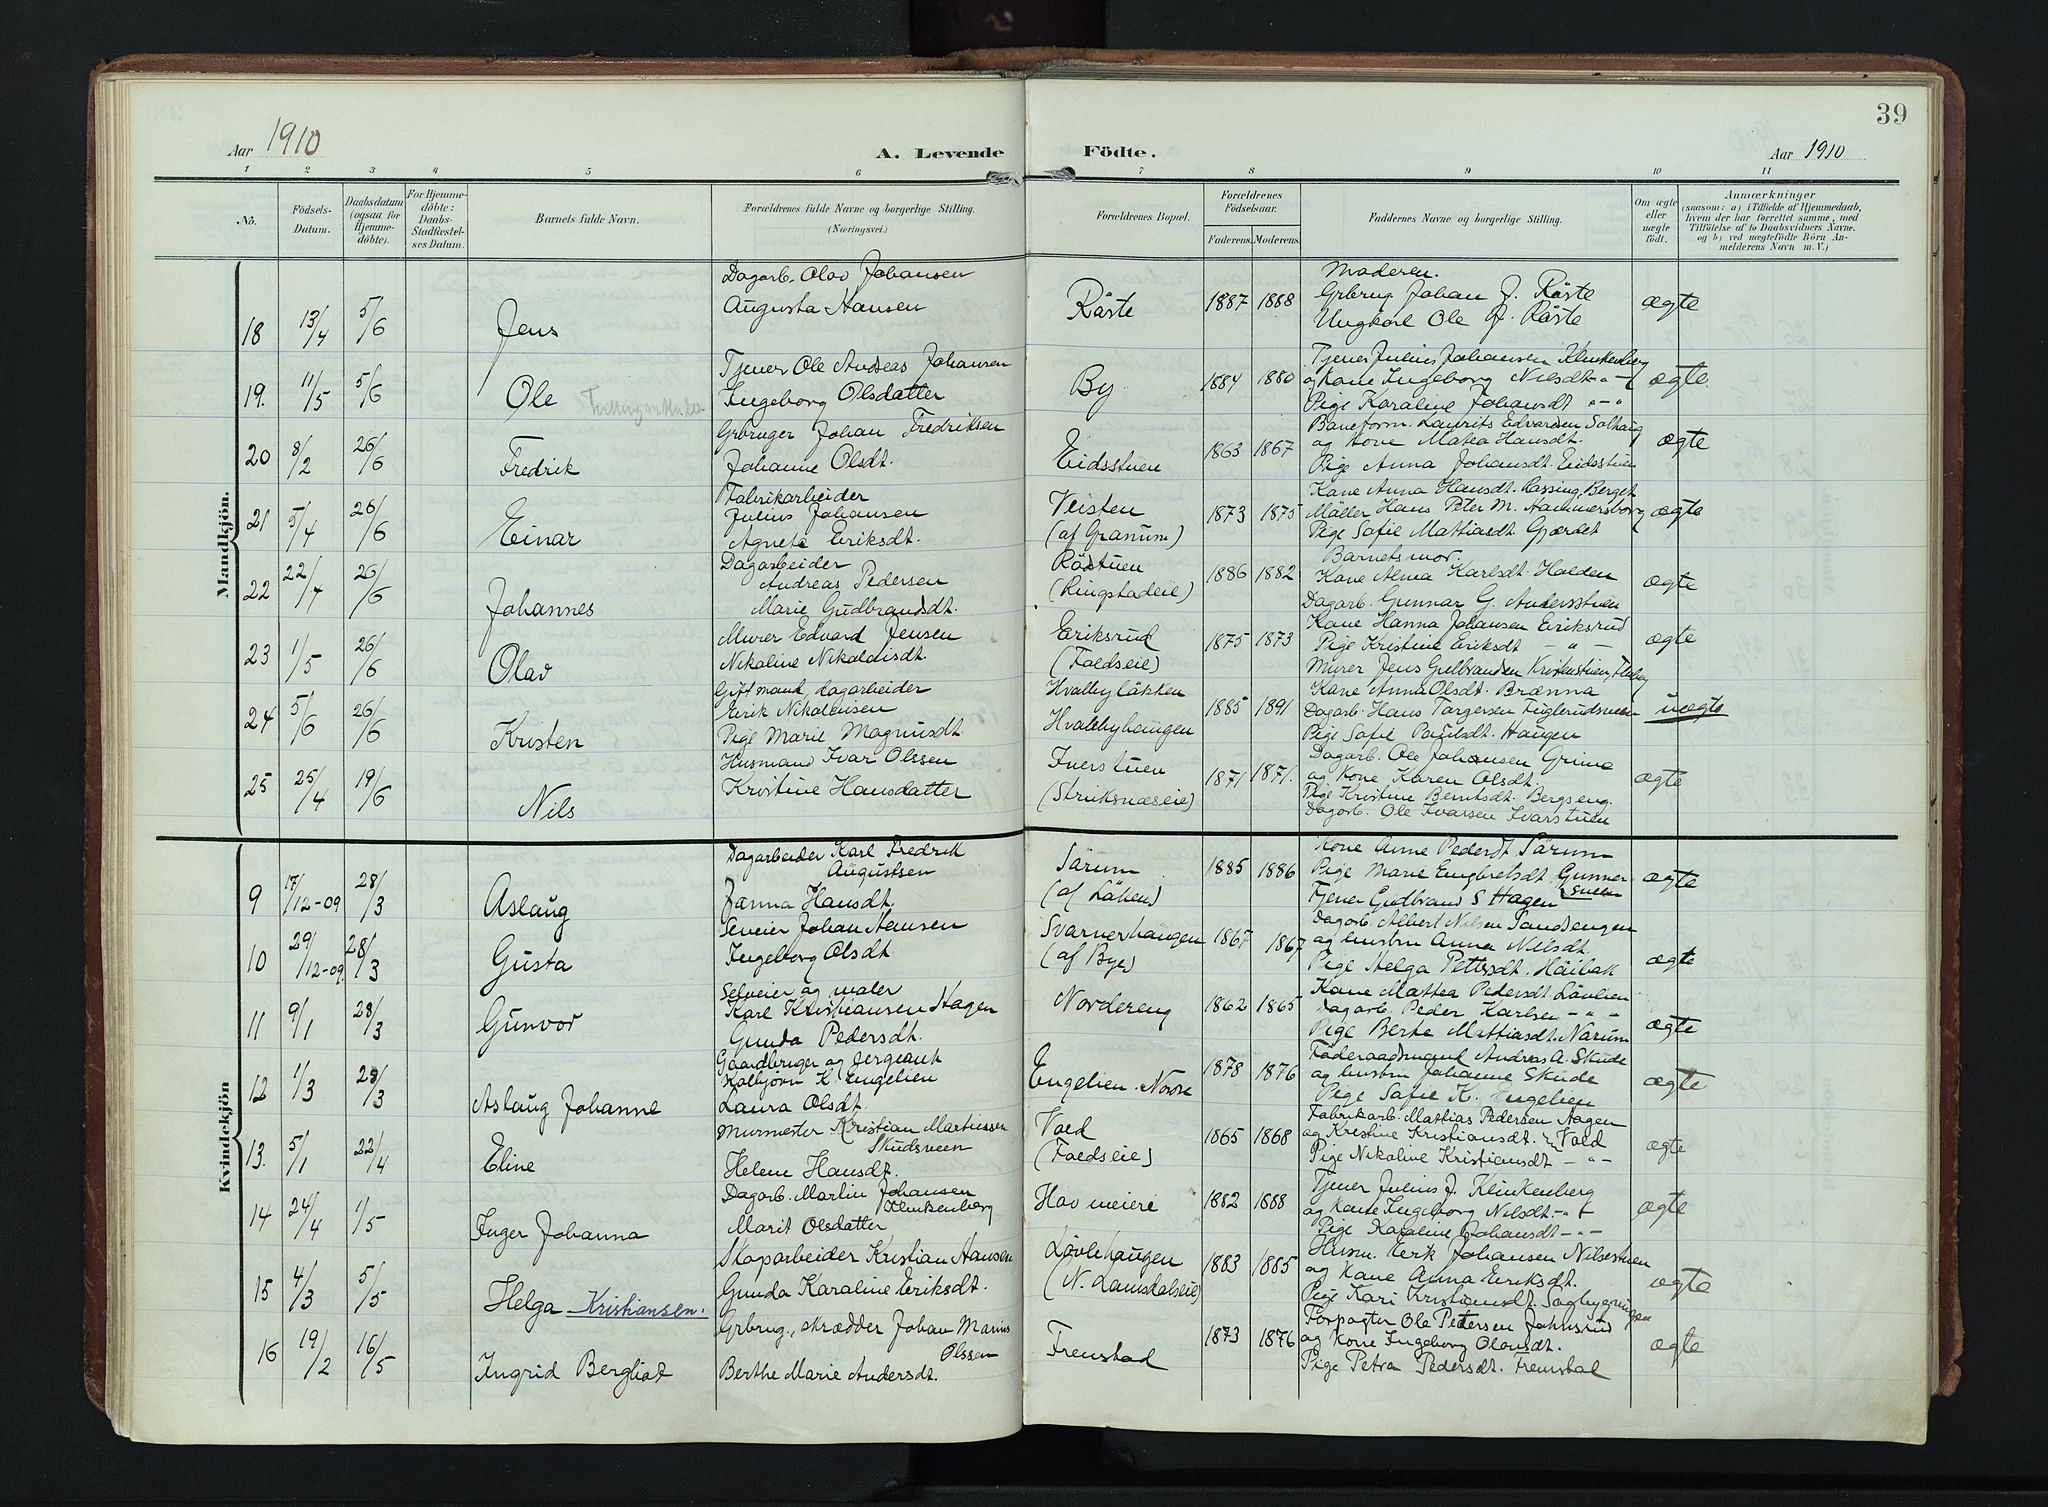 39
Aar 1910
A. Levende Födte.
Aar 1910
1 2 3 4 5 6 7 8 9 10 11
Nô.
Födsels-Datum.
Daabsdatum (ogsaa for Hjemme-döbte).
For Hjemme-döbte: Daabs-Stadfæstel-ses Datum.
Barnets fulde Navn.
Forældrenes fulde Navne og borgerlige Stilling.
(Næringsvei.)
Forældrenes Bopæl.
Forældrenes Fødselsaar.
Faderens. Moderens.
Faddernes Navne og borgerlige Stilling.
Om ægte eller uægte födt.
Anmærkninger
(saasom: a) i Tilfælde af Hjemmedaab,
hvem der har forrettet samme, med
Tilföielse af to Daabsvidners Navne.
og b) ved uægtefödte Börn An-
melderens Navn m. V.)
Mandkjön.
18 13/4 5/6 Jens
Dagarb. Olav Johansen
Augusta Hansen
Råste 1887 1888
Moderen.
Grbrug. Johan J. Råste
Ungkarl Ole J. Råste
ægte
19. 11/5 5/6 Ole
Tjener Ole Andreas Johansen
Ingeborg Olsdatter
By 1884 1880
Tjener Julius Johansen Klinkenberg
og Kone Ingeborg Nilsdt. -"-
Pige Karaline Johansdt "-"
ægte.
20 8/2 26/6 Fredrik
Grbruger Johan Fredriksen
Johanne Olsdt.
Eidsstuen 1863 1867
Baneform. Laurits Edvardsen Solhaug
og Kone Matea Hansdt.
Pige Anna Johansdt. Eidsstuen
ægte
21 5/4 26/6 Einar
Fabrikarbeider
Julius Johansen
Agnete Eriksdt.
Veisten
(af Granum)
1873 1875
Kone Anna Hansdt. Rassing, Berget
Möller Hans Peter M. Hammersborg
Pige Sofie Mattiasdt Gjærdet
ægte
22 22/4 26/6 Johannes
Dagarbeider
Andreas Pedersen
Marie Gudbrandsdt.
Råstuen
(Ringstadeie)
1886 1882
Barnets mor.
Kone Alma Karlsdt. Halden
Dagarb. Gunnar G. Andersstuen
ægte
23 1/5 26/6 Olav
Murer Edvard Jensen
Nikoline Nikolaisdt.
Eriksrud
(Faldseie)
1875 1873
Kone Hanna Johansen Eriksrud
Pige Kristine Eriksdt - " -
Murer Jens Gulbrandsen
ægte
24 5/6 26/6 Kristen
Gift mand, dagarbeider
Erik Nikolaisen
Pige Marie Magnusdt.
Hvalbylökken
Hvalbyhaugen
1885 1891
Kone Anna Olsdt. Brænna
Dagarb. Hans Torgersen Fuglerudsveen
Pige Sofie Haugen
uægte
25 25/4 19/6 Nils
Husmand Ivar Olssen
Kristine Hansdatter
Iverstuen
(Striksnæseie)
1871 1871.
Dagarb. Ole Johansen Grina
og Kone Karen Olsdt.
Pige Kristine Berntsdt. Bergseng.
Dagarb. Ole Ivarsen Ivarstuen
ægte
Kvindekjön
9 17/12-09 28/3 Aslaug
Dagarbeider Karl Fredrik
Augustsen
Jenna Hansdt.
Sörum
(af Löken)
1885 1886
Kone Anne Pedersdt Sörum
Pige Marie Engbretsdt. Gunner-
sveen
Tjener Gudbrand S Hagen
ægte
10 29/12-09 28/3 Gusta
Selveier Johan Hansen
Ingeborg Olsdt
Svarverhaugen
(af Bye)
1867 1867
Dagarb. Albert Nilsen Sandsengen
og hustru Anna Nilsdt.
Pige Helga Pettersdt. Håibak
ægte
11 9/1 28/3 Gunvor
Selveier og maler
Karl Kristiansen Hagen
Gunda Pedersdt.
Nordereng 1862 1865
Kone Mattea Pedersdt Lövlien
Dagarb. Peder Karlsen -"-
Pige Berte Mattiasdt. Narum
ægte
12 1/3 28/3 Aslaug Johanne
Gaardbruger og sergeant
Kolbjörn K. Engelien
Laura Olsdt.
Engelien. Nordre
1878 1876
Föderaadsmand Andreas A. Skude
og hustru Johanne Skude
Pige Sofie K. Engelien
ægte
13. 5/1 22/4 Eline
Murmester Kristian Martinsen
Skudsveen
Helene Hansdt.
Vold
(Faldseie)
1865 1868
Fabrikarb. Mattias Pedersen Hagen
og Kristine Kristiansdt. Vold
Pige Nikoline Kristiansdt - " -
ægte
14 24/4 1/5 Inger Johanna
Dagarb. Martin Johansen
Klinkenberg
Marit Olsdatter
Hov meieri 1882 1888
Tjener Julius J. Klinkenberg
og Kone Ingeborg Nilsdt. -"-
Pige Karaline Johansdt -"-
ægte
15 4/3 5/5 Helga Kristiansen.
Skoparbeider Kristian Hansen
Gunda Karaline Eriksdt.
Lövlihaugen
(N. Landskalseie)
1883 1885
Husm. Eerk Johansen Nilsestuen
og Kone Anna Eriksdt.
Pige Kari Kristiansdt. Sagbygningen
ægte
16 19/2 16/5 Ingrid Bergliot
Grbrug., skrædder Johan Marius
Olssen
Berthe Marie Andersdt.
Fremstad 1873 1876
Forpagter Ole Pedersen Johnsrud
og Kone Ingeborg Olausdt.
Pige Petra Pedersdt. Fremstad
ægte